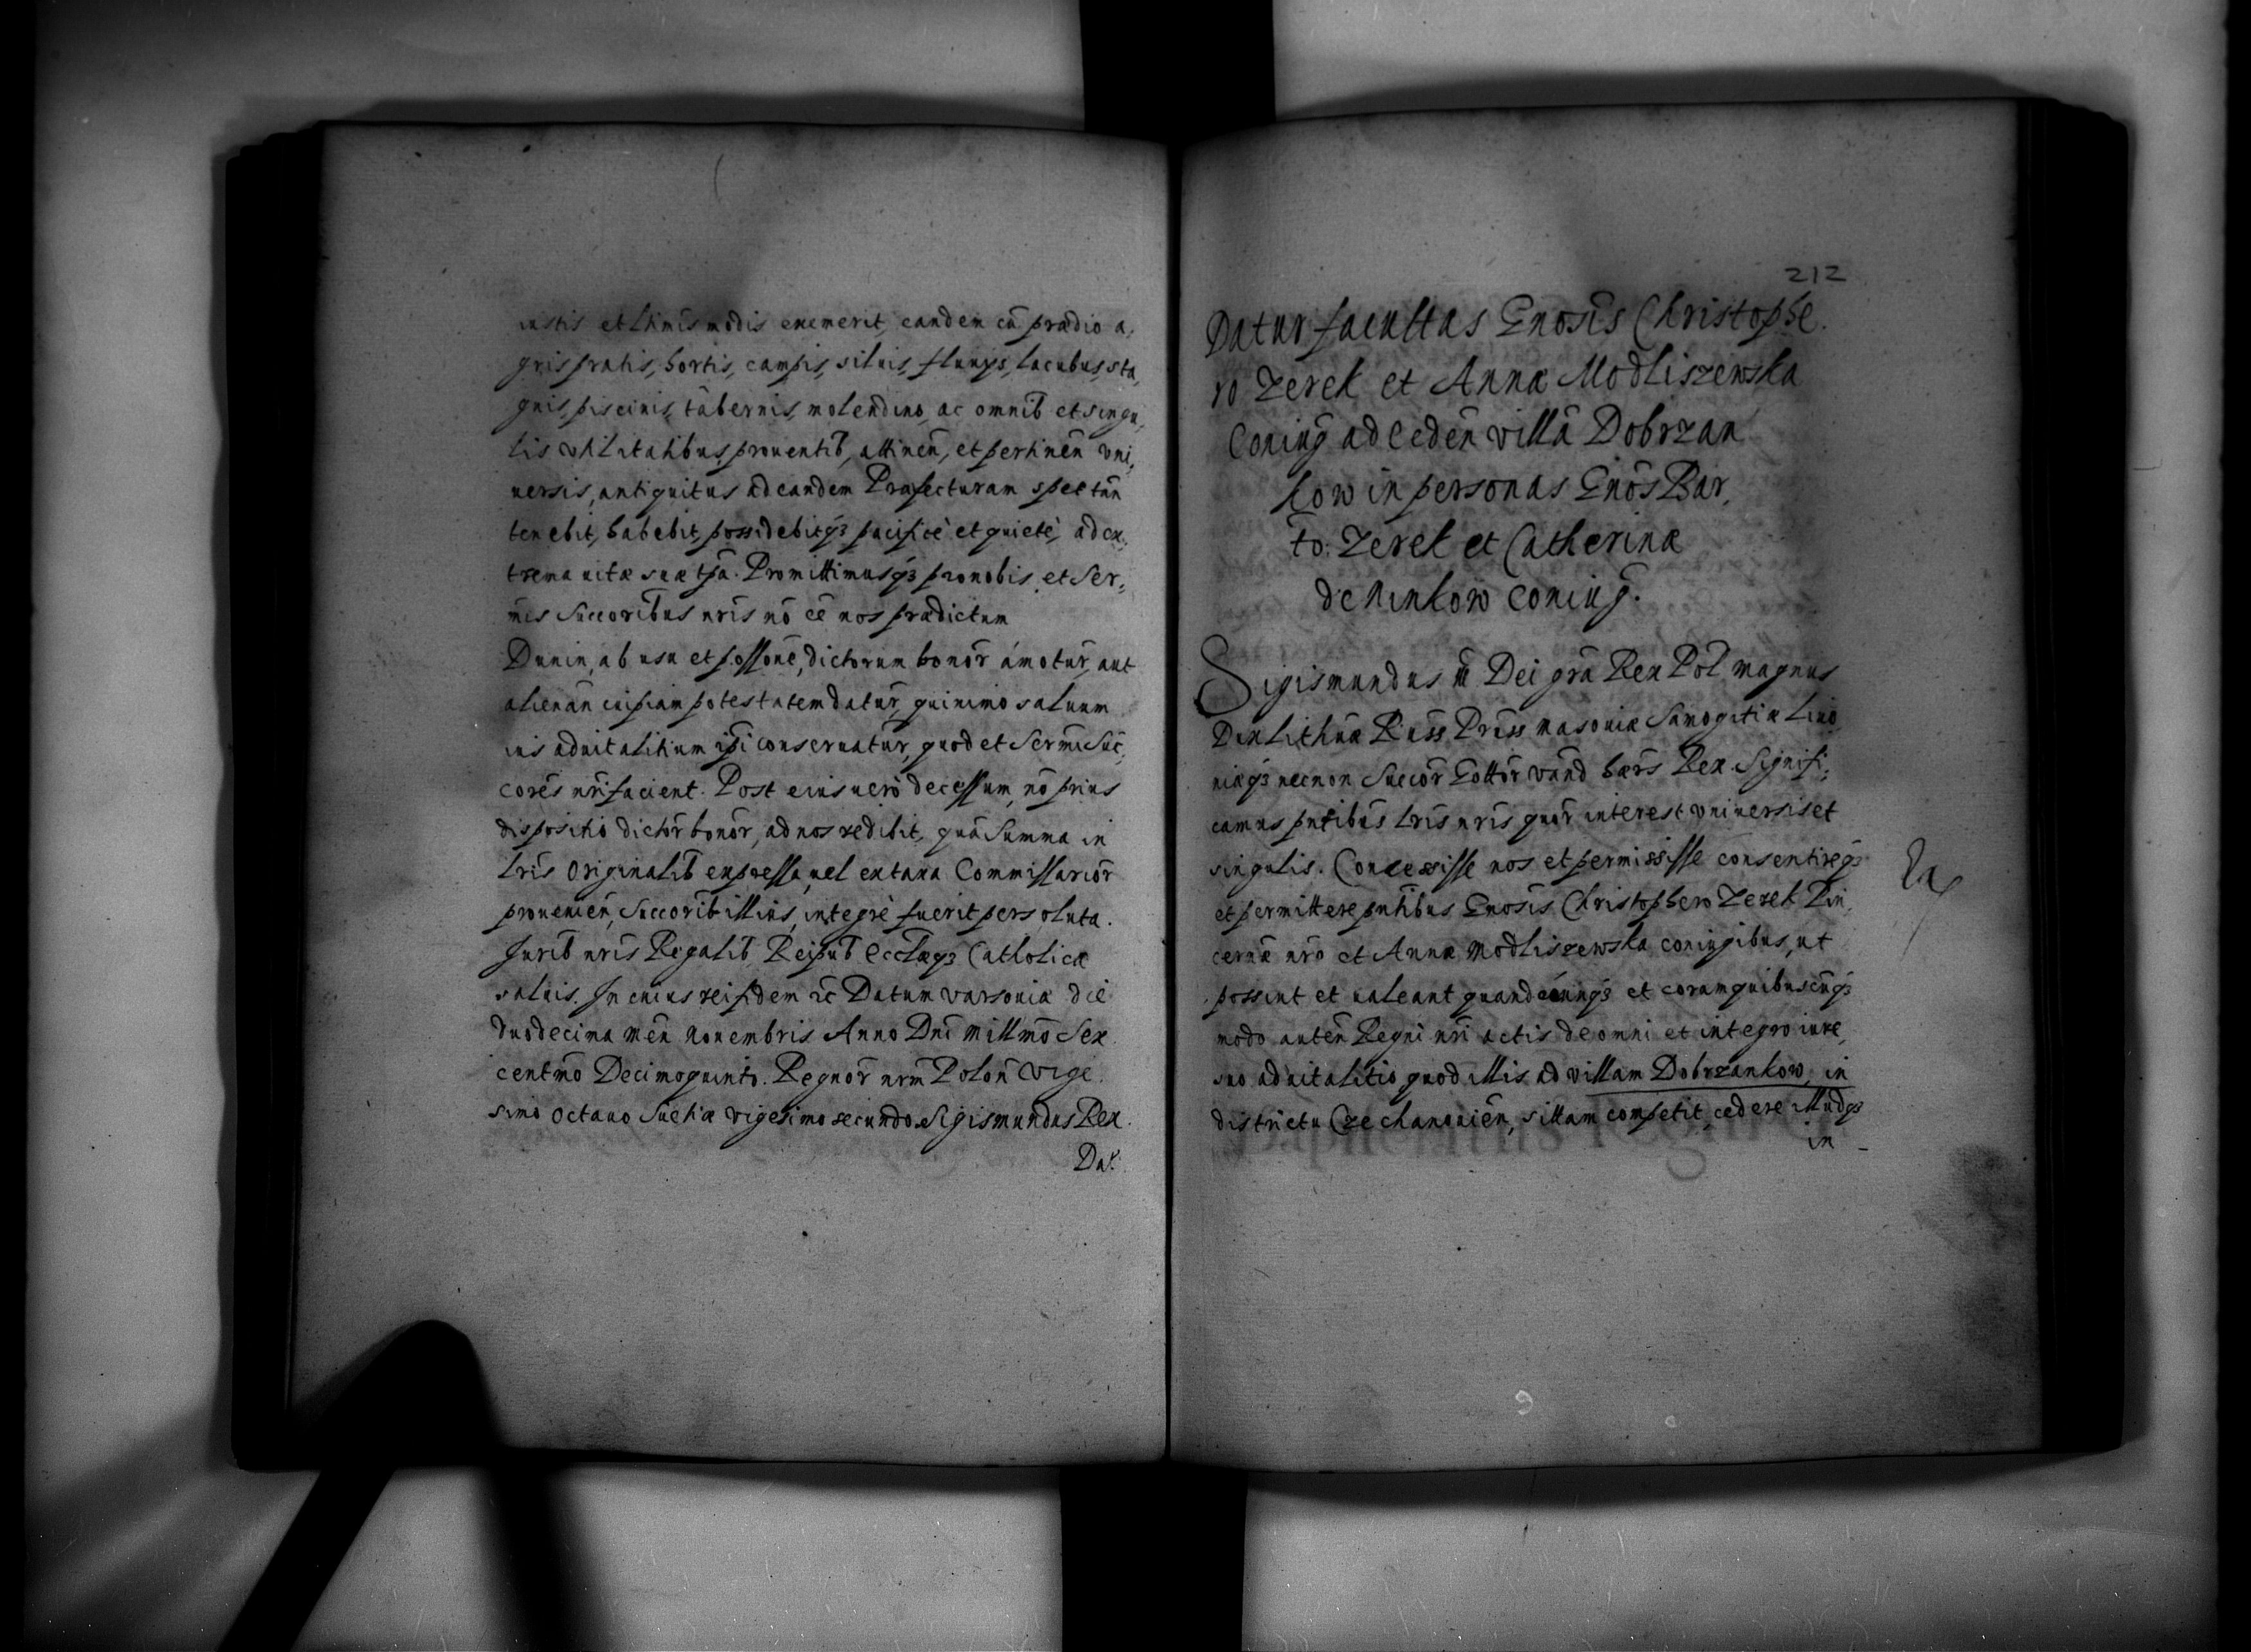 iustis et ltimis modis enemerit, eandem cū prædio a,
gris pratis, hortis, campis, siluis, fluuys, lacubus, sta,
gnis, piscinis, tabernis, molendino, ac omnib et singu,
lis vtilitatibus, prouentib, attinen, et pertinen vni,
uersis, antiquitus ad eandem Præfecturam spectan
tenebit, habebit, possidebitqȝ pacifice et quiete, ad ex,
trema uitæ suæ tpa. Promittimusqȝ pro nobis, et Ser,
mis Succoribus nris nō ee nos prædictum
Dunin, ab usu et possone, dictorum bonor amotur, aut
alienan cuipiam potestatem datur, quinimo saluum
ius aduitalitium ipi conseruatur, quod et Sermi Suc,
cores nri facient. Post eius uero decessum, nō prius
dispositio dictor bonor, ad nos redibit, quā Summa in
Lris Originalib expressa, uel ex taxa Commissarior
prouenien, Succorib illius, integre fuerit persoluta.
Jurib nris Regalib, Reipub Ecclæqȝ Catholicæ
saluis. In cuius rei fidem &c Datum varsouiæ die
duodecima men nouembris Anno Dni Millmo Sex
centmo Decimoquinto. Regnor nrm Polon vige
simo octauo Suetiæ vigesimo secundo. Sigismundus Rex.
Dat.
212
Datur facultas Gnosis Christophe
ro Zerek et Annæ Modliszewska
Coniug ad cedēn villā Dobrzan
kow in personas Gnos Bar,
to: Zerek et Catherinæ
de Ninkow coniug.
Sigismundus III Dei grā Rex Pol magnus
Dux Lithuæ Russ Pruss Masouiæ Samogitiæ Liuo
niæqȝ necnon Succor Gottor vand hærs Rex. Signifi,
camus pntibus Lris nris quor interest vniuersis et
singulis. Concessisse nos et permississe consentireqȝ
et permittere pntibus Gnosis Christophero Zerek Pin,
cernæ nro et Annæ Modliszewska coniugibus, ut
possint et ualeant quandocunqȝ et coram quibuscunqȝ
modo auten Regni nri actis de omni et integro iure,
suo aduitalitio quod illis ad villam Dobrzankow, in
districtu Czechanouien, sittam competit, cedere illudqȝ
in